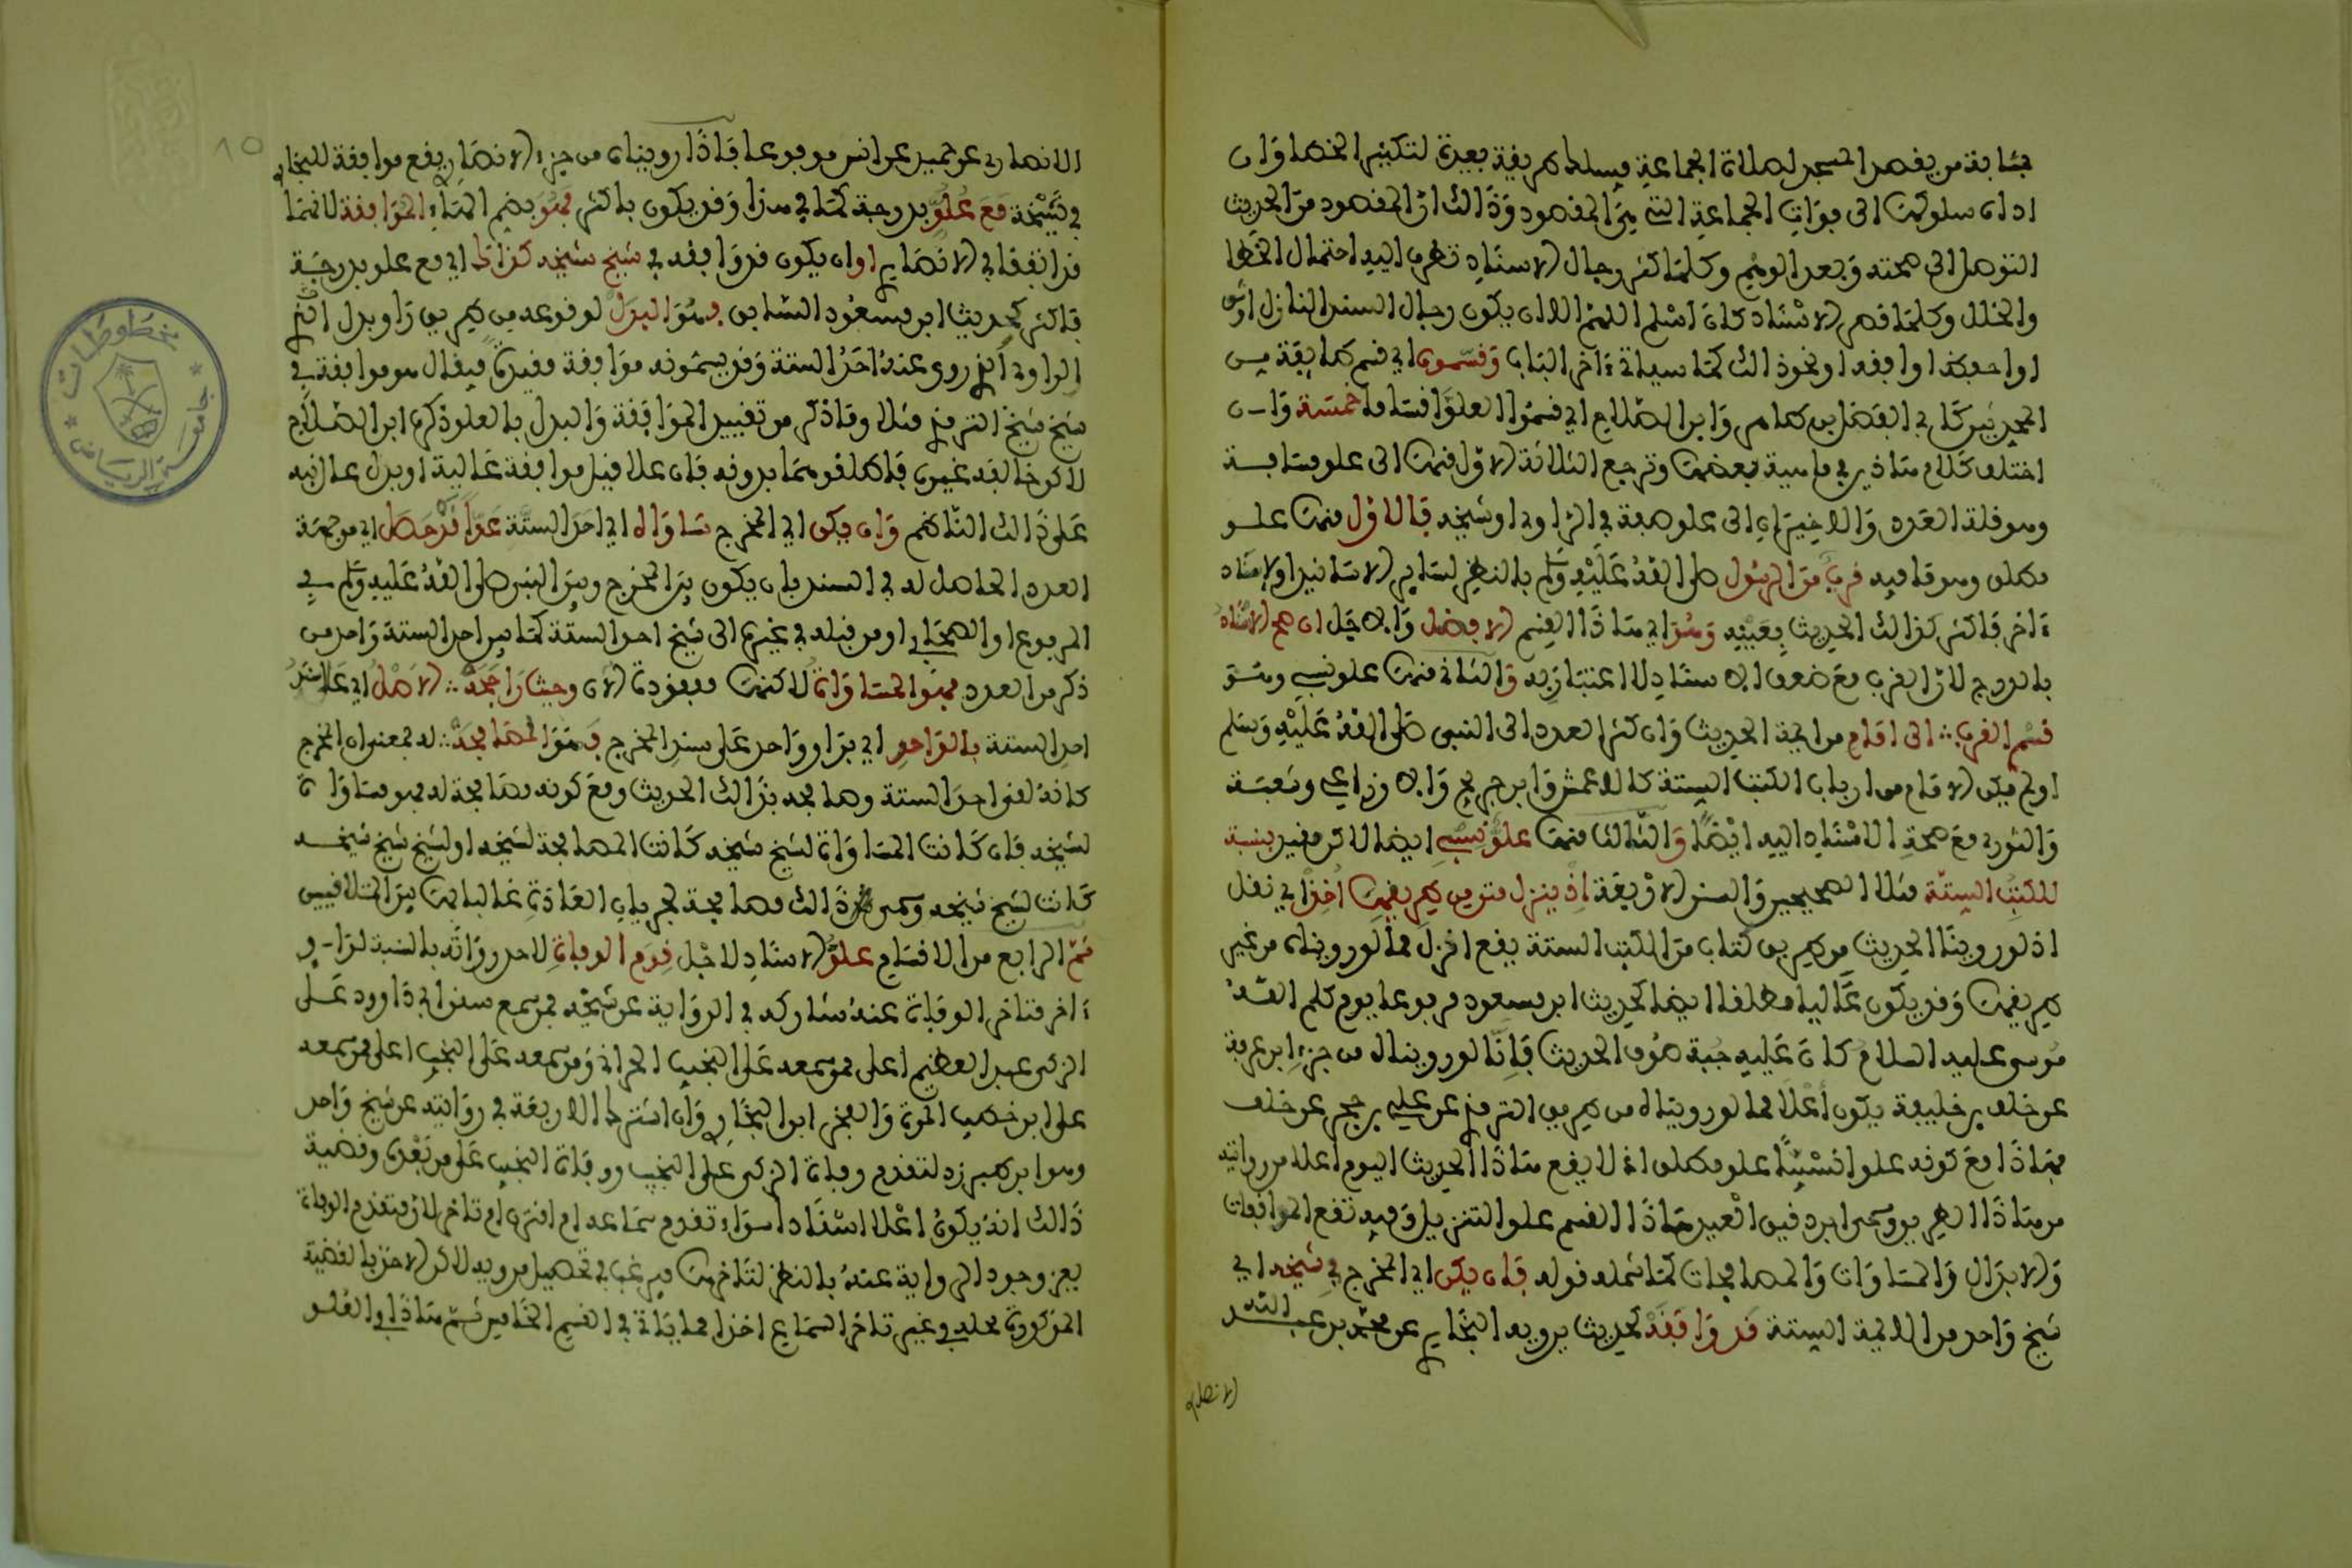 بمثابة من يقصد المسجد لصلاة الجماعة فيسلك طريقة بعيدة لتكثير الخطا وان
اداه سلوكها الى فوات الجماعة التي هي المقصود وذالك ان المقصود من الحديث
التوصل الى صحته وبعد الوهم وكلما كثر رجال الاسناد تطرق اليه احتمال الخطا
والخلل وكلما قصر الاسناد كان اسلم اللهم الا ان يكون رجال السند النازل اوثق
او احفظ او افقه او نحو ذالك كما سياتي ءاخر الباب وقسموه اي قسم طايفة من
المحدثين كابي الفضل بن طاهر وابن الصلاح اي قسموا العلو اقساما خمسة وان
اختلف كلام هاذين في ماهية بعضها وترجع الثلاثة الاول منها الى علو مسافة
وهو قلة العدد والاخيران الى علو صفة في الراوي او شيخه فالاول منها علو
مطلق وهو ما فيه قرب من الرسول صلى الله عليه وسلم بالنظر لساير الاسانيد او لاسناد
ءاخر فاكثر لذالك الحديث بعينه وهو اي هاذا القسم الافضل والاجل ان صح الاسناد
بالدرج لان القرب مع ضعف الاسناد لا اعتبار به والثاني منها علو نسبي وهو
قسم القرب الى امام من ايمة الحديث وان كثر العدد الى النبي صلى الله عليه وسلم
او لم يكن الامام من ارباب الكتب الستة كالاعمش وابن جريج والاوزاعي وشعبة
والثوري مع صحة الاسناد اليه ايضا والثالث منها علو نسبي ايضا لاكن مقيد بنسبة
للكتب الستة مثلا الصحيحين والسنن الاربعة اذ ينزل متن من طريقها اخذا اي نقل
اذ لو روينا الحديث من طريق كتاب من الكتب الستة يقع انزل مما لو رويناه من غير
طريقها وقد يكون عاليا مطلقا ايضا كحديث ابن مسعود مرفوعا يوم كلم الله
موسى عليه السلام كان عليه جبة صوف الحديث فانا لو رويناه من جزء ابن عرفة
عن خلف بن خليفة يكون اعلا مما لو رويناه من طريق الترمذي عن علي بن حجر عن خلف
فهاذا مع كونه علوا نسبيا علو مطلق اذ لا يقع هاذا الحديث اليوم اعلا من روايته
من هاذا الطريق وسمى ابن دقيق العيد هاذا القسم علو التنزيل وفيه تقع الموافقات
والابدال والمساوات والمصافحات كما شمله قوله فان يكن اي المخرج في شيخه اي
شيخ واحد من الايمة الستة قد وافقه كحديث يرويه البخاري عن محمد بن عبد الله
الانصاري
الانصاري عن حميد عن انس مرفوعا فاذا رويناه من جزء الانصاري يقع موافقة للبخاري
في شيخه مع علو بدرجة كما في هذا وقد يكون باكثر فهو بضم الهاء الموافقة لانهما
قد اتفقا في الانصاري او ان يكون قد وافقه في شيخ شيخه كذا اي مع علو بدرجة
فاكثر كحديث ابن مسعود السابق فهو البدل لوقوعه من طريق راو بدل
الراوي الذي روى عنه احد الستة وقد يسمونه موافقة مقيدة فيقال هو موافقة في
شيخ شيخ الترمذي مثلا وما ذكر من تقييد الموافقة والبدل بالعلو ذكره ابن الصلاح
لاكن خالفه غيره فاطلقوهما بدونه فان علا قيل موافقة عالية او بدل عال نبه
على ذالك الناظم وان يكن اي المخرج ساواه اي احد الستة عدا قد حصل اي من جهة
العدد الحاصل له في السند بان يكون بين المخرج وبين النبي صلى الله عليه وسلم في
المرفوع او الصحابي او من قبله في غيره الى شيخ احد الستة كما بين احد الستة واحد من
ذكر من العدد فهو المساواة لاكنها مفقودة الان وحيث راجحه الاصل اي علا
احد الستة بالواحد اي بزاد واحد على سند المخرج فهو المصافحة له بمعنى ان المخرج
كانه لقي احد الستة وصافحه بذالك الحديث ومع كونه مصافحة له فهو مساواة
لشيخه فان كانت المساواة لشيخ شيخه كانت المصافحة لشيخه او لشيخ شيخ شيخه
كانت لشيخ شيخه وسمى ذالك مصافحة لجريان العادة غالبا بها بين المتلاقيين
ثم الرابع من الاقسام علو الاسناد لاجل قدم الوفاة لاحد رواته بالنسبة لراو
ءاخر متاخر الوفاة عنه شاركه في الرواية عن شيخه فمن سمع سنن ابي داوود على
الزكي عبد العظيم اعلى ممن سمعه على النجيب الحراني ومن سمعه على النجيب اعلى ممن سمعه
على ابن خطيب المزة والفخر ابن البخاري وان اشترك الاربعة في روايته عن شيخ واحد
وهو ابن طبرزد لتقدم وفاة الزكي على النجيب ووفاة النجيب على من بعده وقضية
ذالك انه يكون اعلا اسنادا سواء تقدم سماعه ام اقترن ام تاخر لان متقدم الوفاة
يعز وجود الرواية عنه بالنظر لمتاخرها فيرغب في تحصيل مرويه لاكن الاخذ بالقضية
المذكورة محله في غير تاخر السماع اخذا مما ياتي في القسم الخامس ثم هاذا والعلو
١٥
مخطوطات
جامعة الرياض